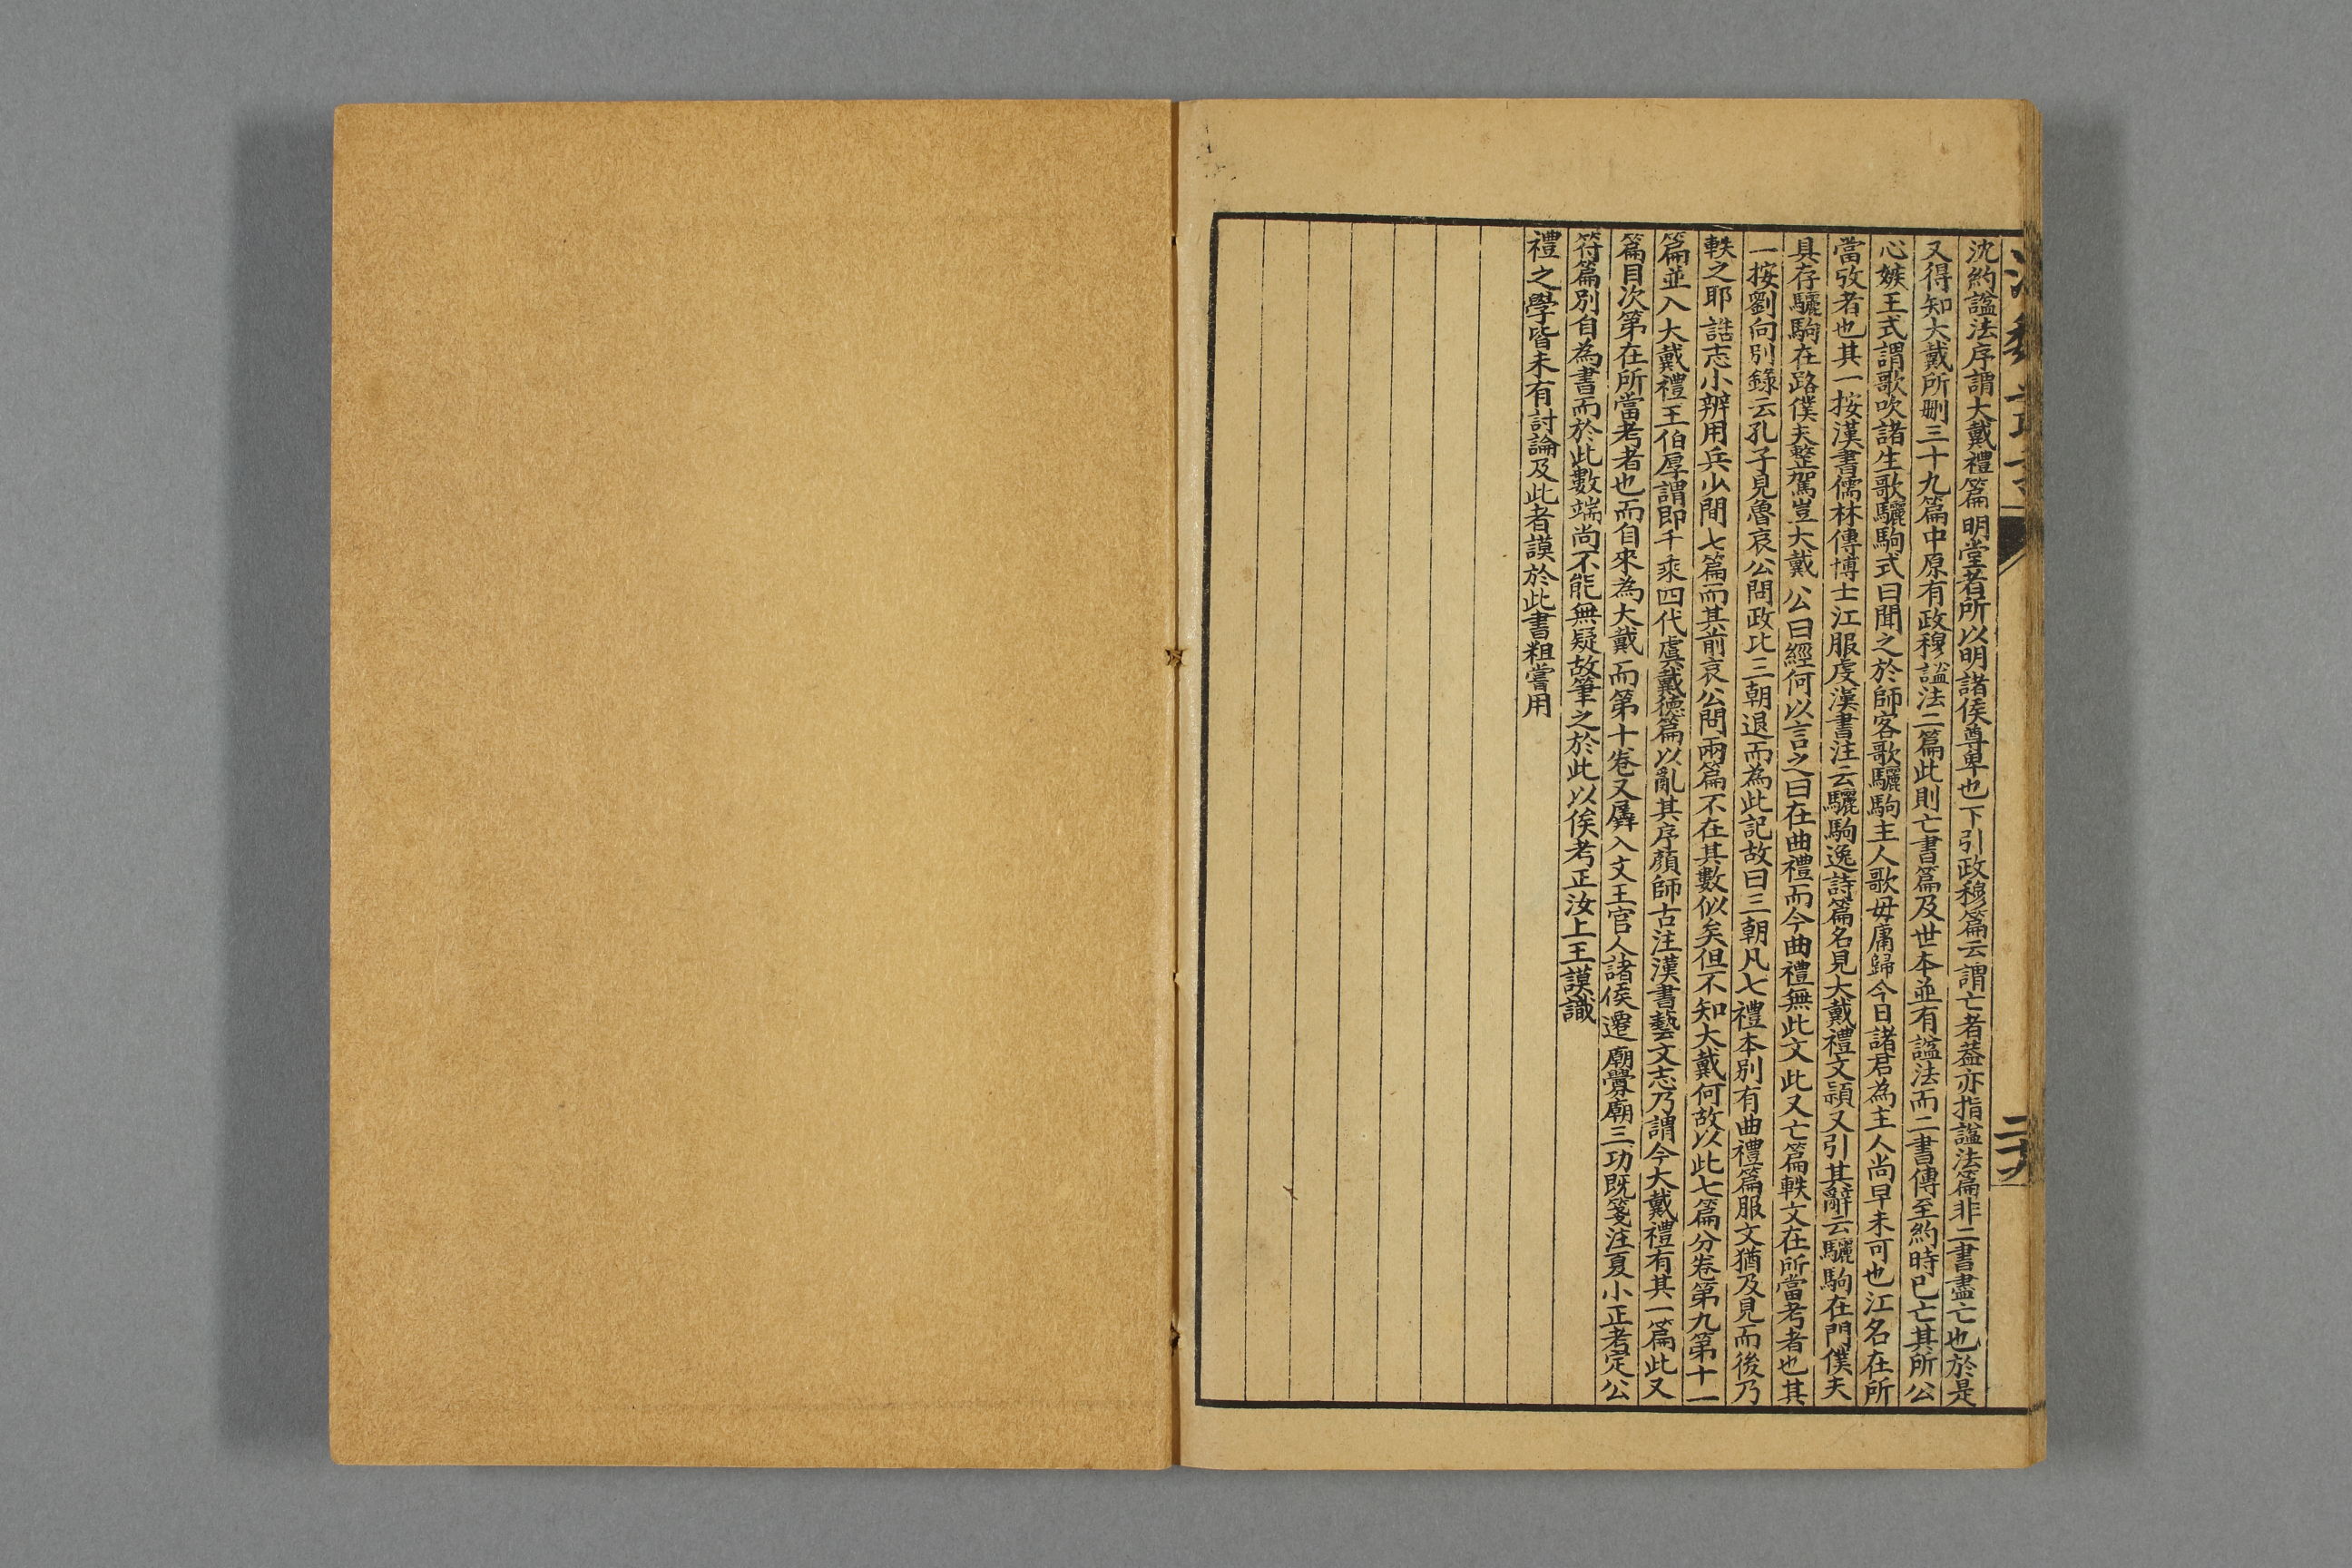 沈約謚法序謂大戴禮篇明堂者所以明諸侯尊卑也下引政穆篇云謂亡者葢亦指謚法篇非二書盡亡也於是
又得知大戴所刪三十九篇中原有政穆謚法二篇此則亡書篇及世本並有謚法而二書傳至約時已亡其所公
心嫉王式謂歌吹諸生歌驪駒式曰聞之於師客歌驪駒主人歌毋庸歸今日諸君為主人尚早未可也江名在所
當攷者也其一按漢書儒林傳博士江服虔漢書注云驪駒逸詩篇名見大戴禮文頴又引其辭云驪駒在門僕夫
具存驪駒在路僕夫整駕豈大戴公曰經何以言之曰在曲禮而今曲禮無此文此又亡篇軼文在所當考者也其
一按劉向別錄云孔子見魯哀公問政比三朝退而為此記故曰三朝凡七禮本別有曲禮篇服文猶及見而後乃
軼之耶誥志小辨用兵少間七篇而其前哀公問兩篇不在其數似矣但不知大戴何故以此七篇分卷第九第十一
篇並入大戴禮王伯厚謂即千乘四代虞戴德篇以亂其序顏師古注漢書藝文志乃謂今大戴禮有其一篇此又
篇目次第在所當考者也而自來為大戴而第十卷又羼入文王官人諸侯遷廟釁廟三功既箋注夏小正考定公
符篇別自為書而於此數端尚不能無疑故筆之於此以俟考正汝上王謨識
禮之學皆未有討論及此者謨於此書粗嘗用
二十六